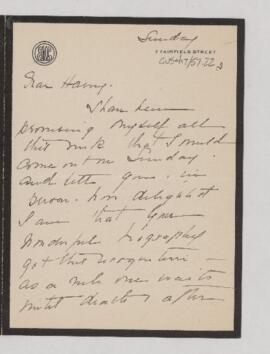 Sunday
7 FAIRFIELD STREET
Dear Harvey.
I have been
promising myself all
this week that I would
come out on Sunday
and tell you in
person how delighted
I am that your
wonderful biography
got this recognition —
as a rule one waits
until death &